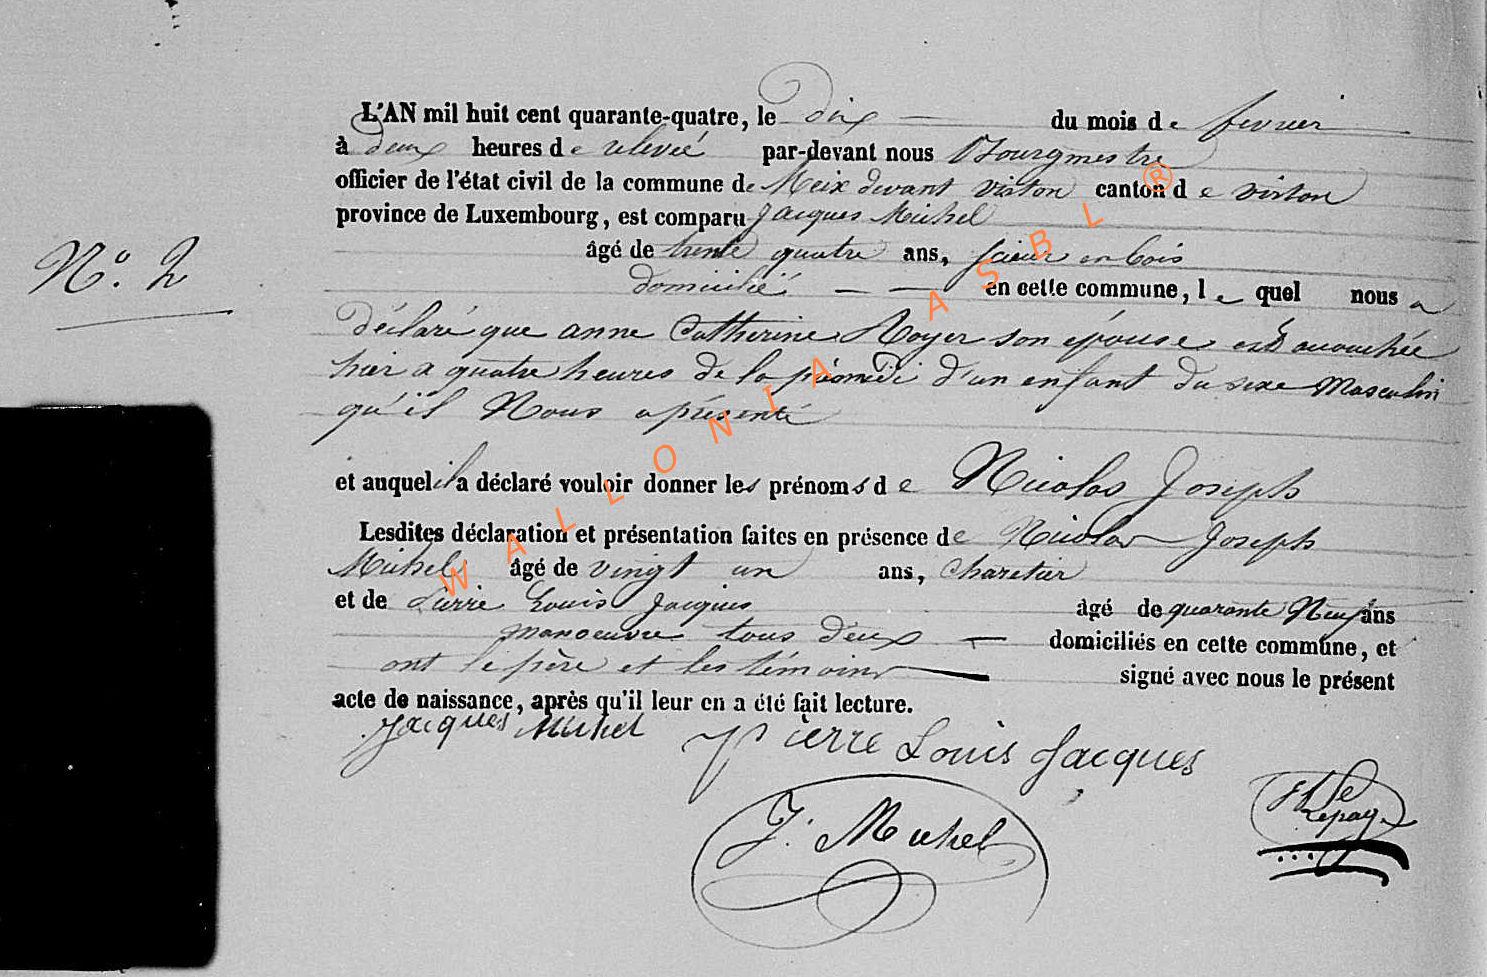 L'AN mil huit cent quarante-quatre, le dix du mois de fevrier
à deux heures de relevée par-devant nous Bourgmestre
officier de l'état civil de la commune de Meix devant virton canton de virton
province de Luxembourg, est comparu Jacques Michel
N.° 2
âgé de trente quatre ans, scieur en bois
domicilié en cette commune, lequel nous a
déclaré que anne Catherine Royer son épouse est accouchée
hier a quatre heures de la d'un enfant du sexe Masculin
qu'il Nous a présenté
et auquel il a déclaré vouloir donner les prénoms de Nicolas Joseph
Lesdites déclaration et présentation faites en présence de Nicolas Joseph
Michel âgé de vingt un ans, charetier
et de Pierre Louis Jacques âgé de quarante Neuf ans
manoeuvre tous deux domiciliés en cette commune, et
ont le père et les témoins signé avec nous le présent
acte de naissance, après qu'il leur en a été fait lecture.
Jacques Michel Pierre Louis Jacques
J. Michel
WALLONIA ASBL ®